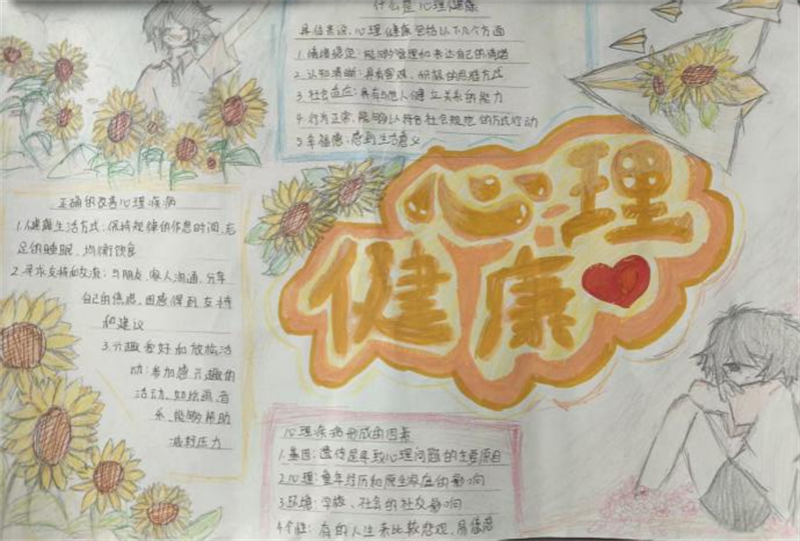 什么是心理健康
具体来说，心理健康包括以下几个方面
1.情绪稳定：能够管理和表达自己的情绪
2.认知清晰：具有客观、积极的思维方式
3.社会适应：具有与他人健立关系的能力
4.行为正常，能够以符合社会规范的方式行动
5.幸福感：感到生活意义
心理
健康
正确的改善心理疾病
1.健康生活方式：保持规律的作息时间，充
足的睡眠、均衡饮食
2.寻求支持和交流：与朋友、家人沟通，分享
自己的焦虑，困惑得到支持
和建议
3.兴趣爱好和放松活
动：参加感兴趣的
活动，如绘画、音
乐，能够帮助
减轻压力
心理疾病形成的因素
1.基因：遗传是导致心理问题的主要原因
2.心理：童年经历和原生家庭的影响
3.环境：学校、社会的社交影响
4.个性：有的人生来比较悲观、易焦虑